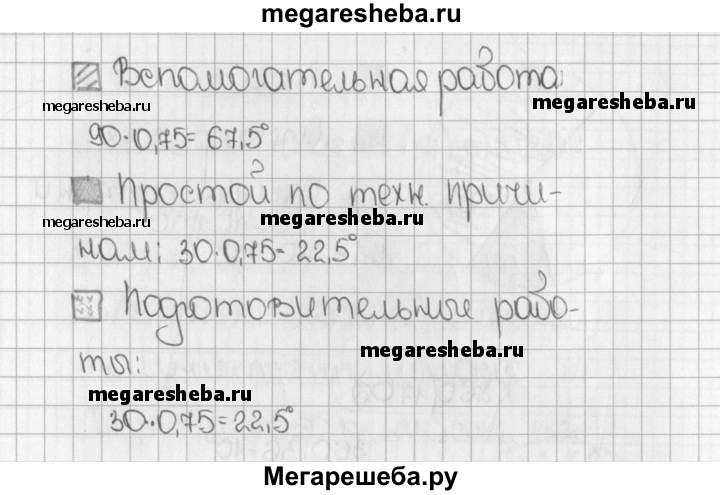 megaresheba.ru
Вспомогательная работа:
megaresheba.ru
megaresheba.ru
90·0,75= 67,5°
Простой по техн. причи-
megaresheba.ru
megaresheba.ru
нам: 30·0,75= 22,5°
Подготовительные рабо-
megaresheba.ru
ты:
megaresheba.ru
30·0,75=22,5°
Мегарешеба.ру